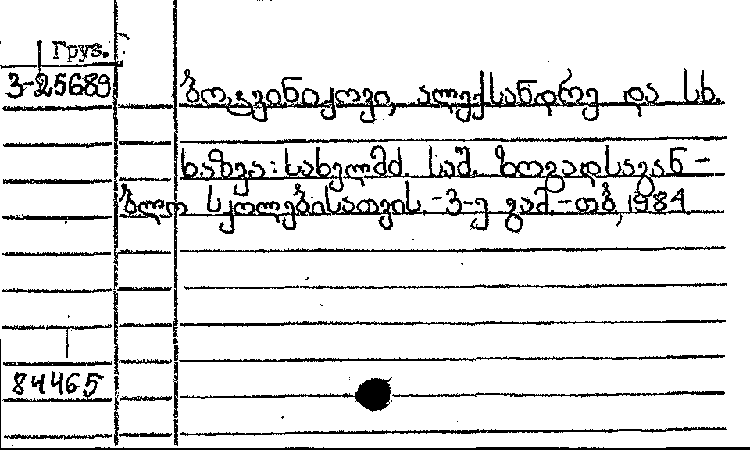 Груз.
3-25689
ბოტვინიკოვი, ალექსანდრე და სხ.
ხაზვა: სახელმძ. საშ. ზოგადსაგან-
ბლო სკოლებისათვის. - 3-ე გამ. - თბ, 1984
84465